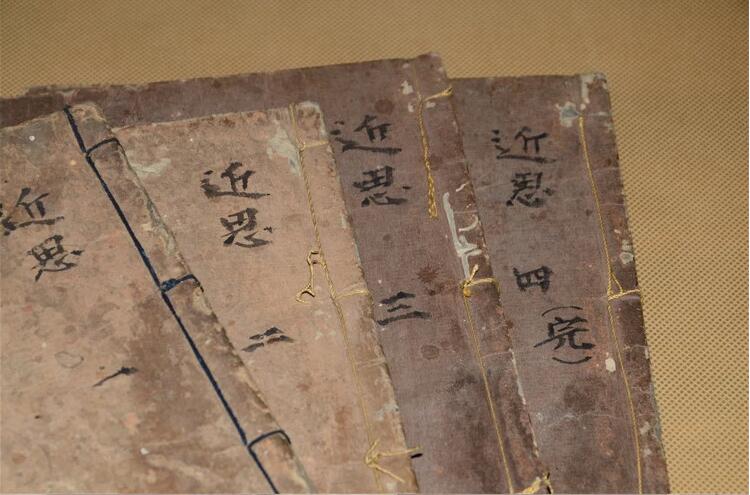 近思
一
近思
二
近思
三
近思
四
(完)